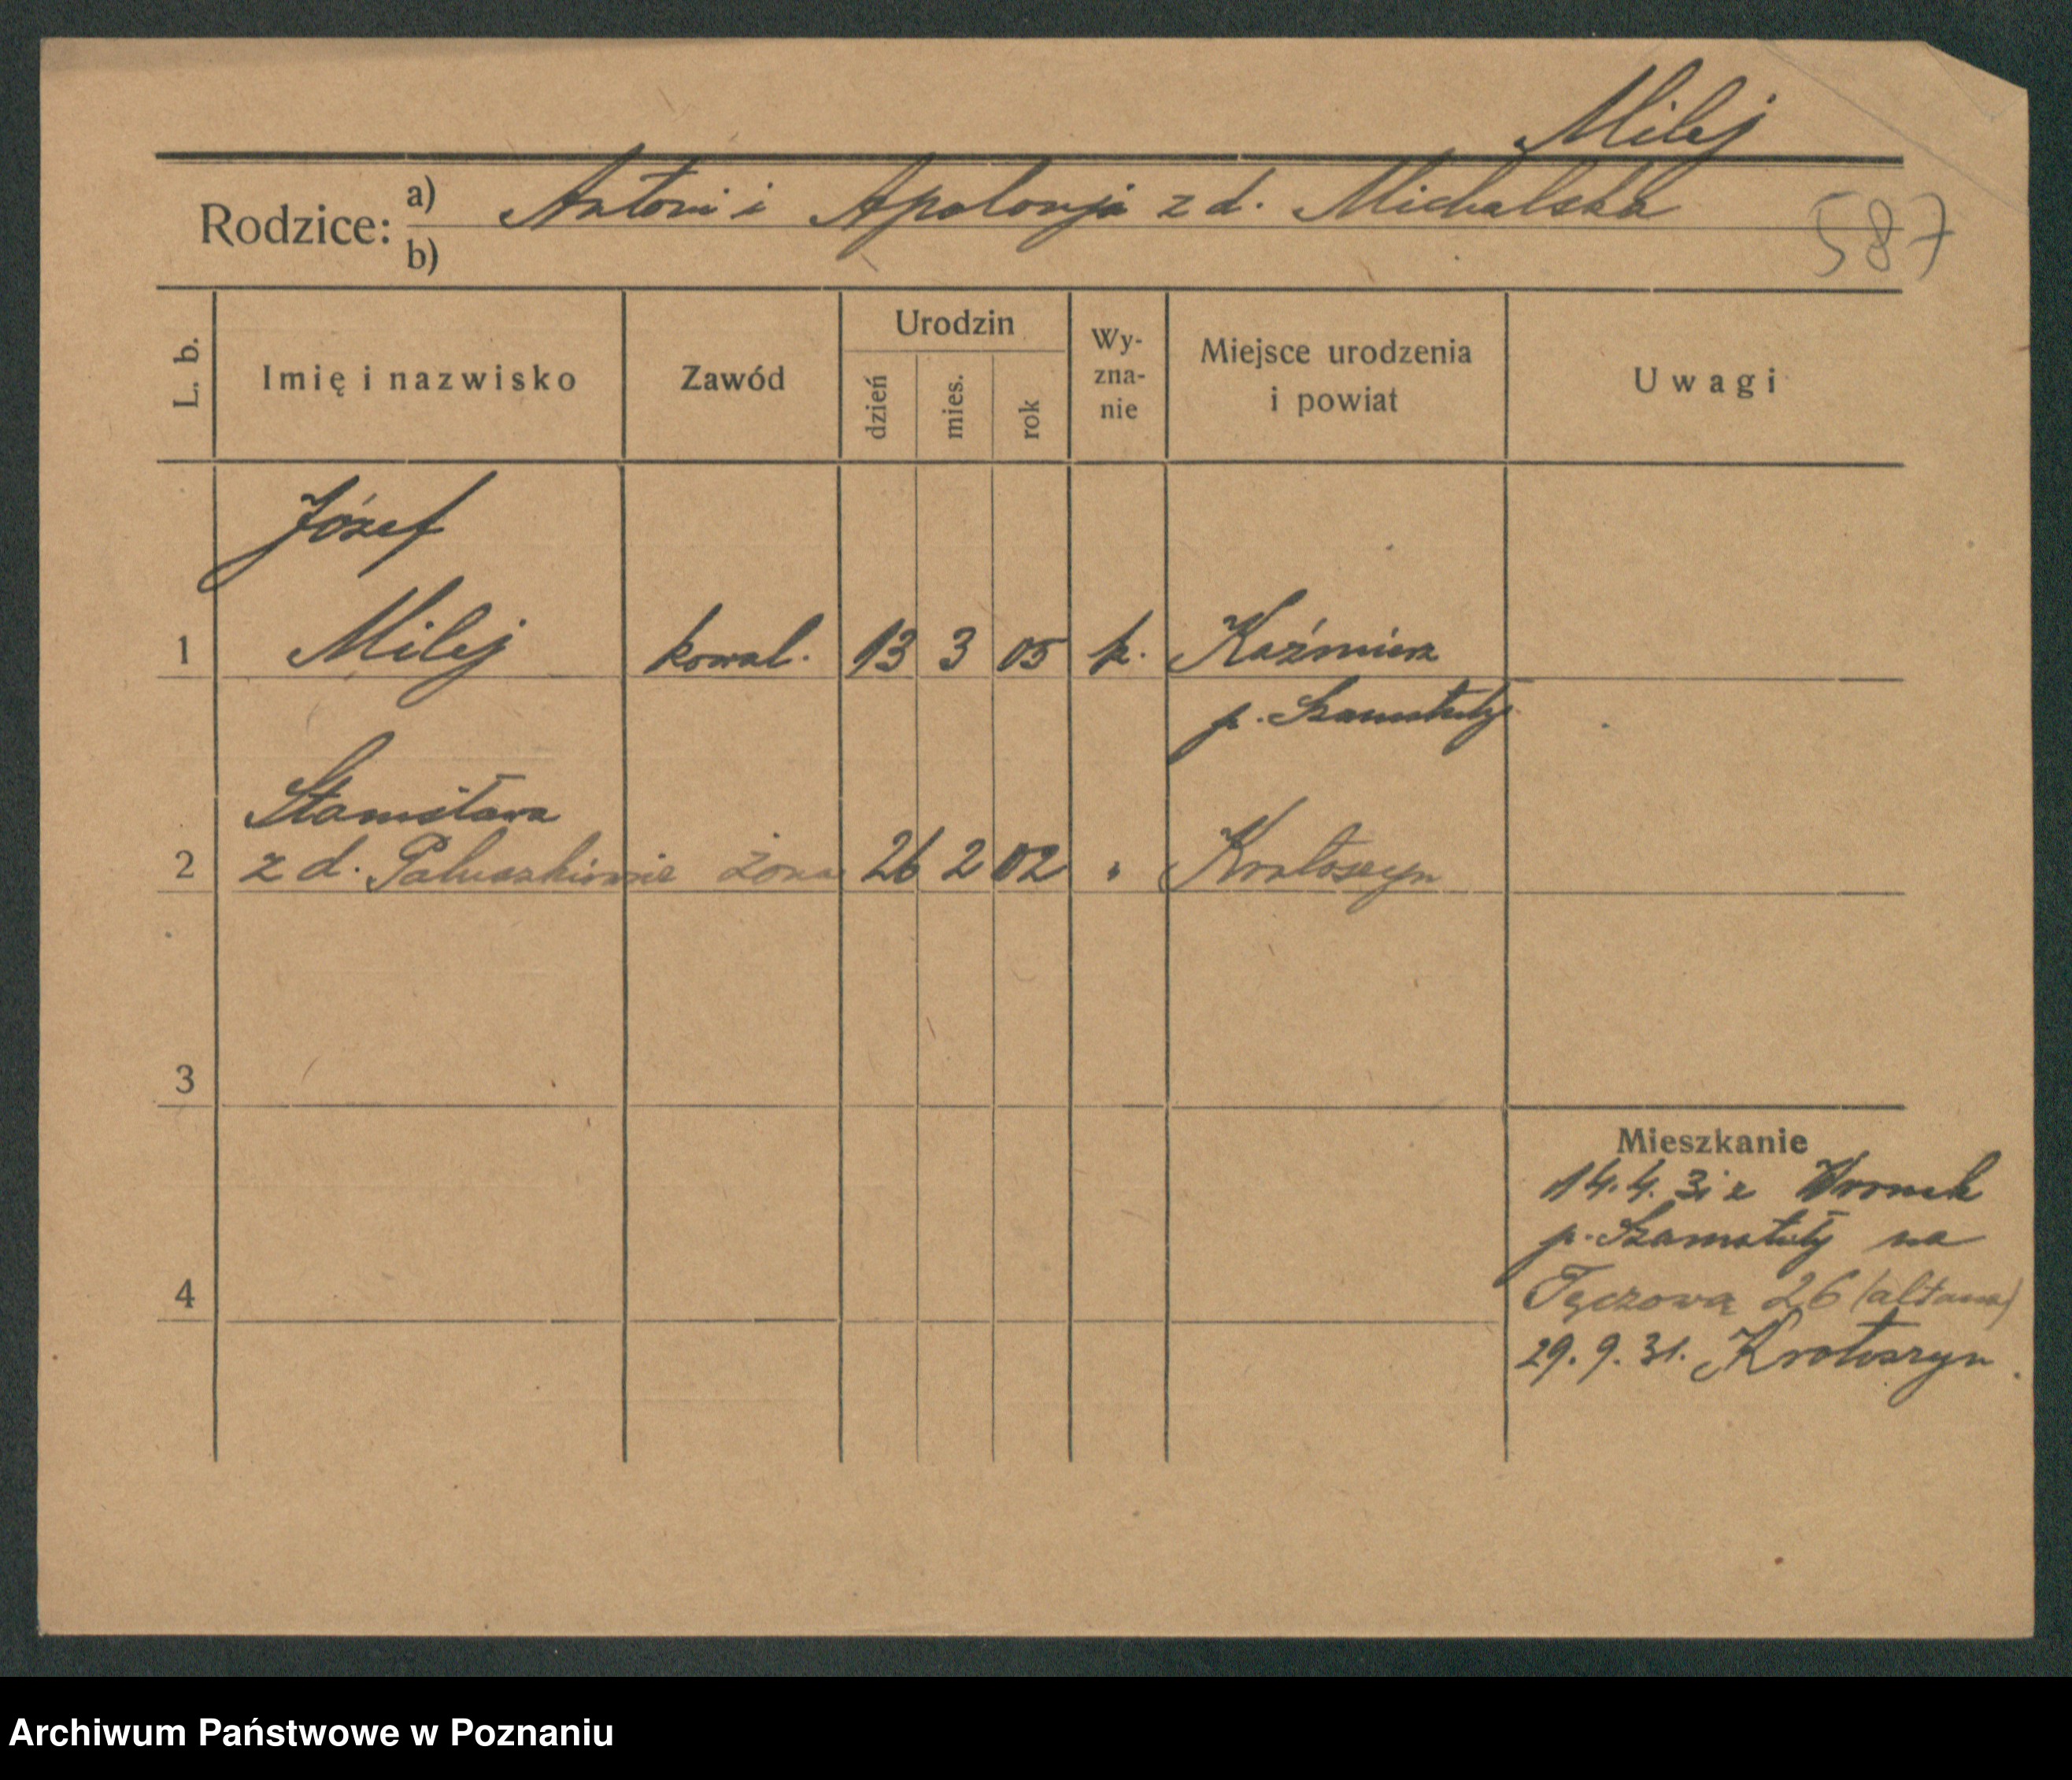 Milej
Rodzice: a) Antoni i Apolonja z d. Michalska
b)
587
L. b.
Imię i nazwisko
Zawód
Urodzin
dzień
mies.
rok
Wy-
zna-
nie
Miejsce urodzenia
i powiat
Uwagi
Józef
1 Milej kowal. 13 3 05 k. Kaźmierz
p. Szamotuły
Stanisława
2 z d. żona 26 2 02 " Krotoszyn
3
4
Mieszkanie
14.4.31 z Wronek
p. Szamotuły na
Tęczową 26 (altana)
29.9.31. Krotoszyn.
Archiwum Państwowe w Poznaniu